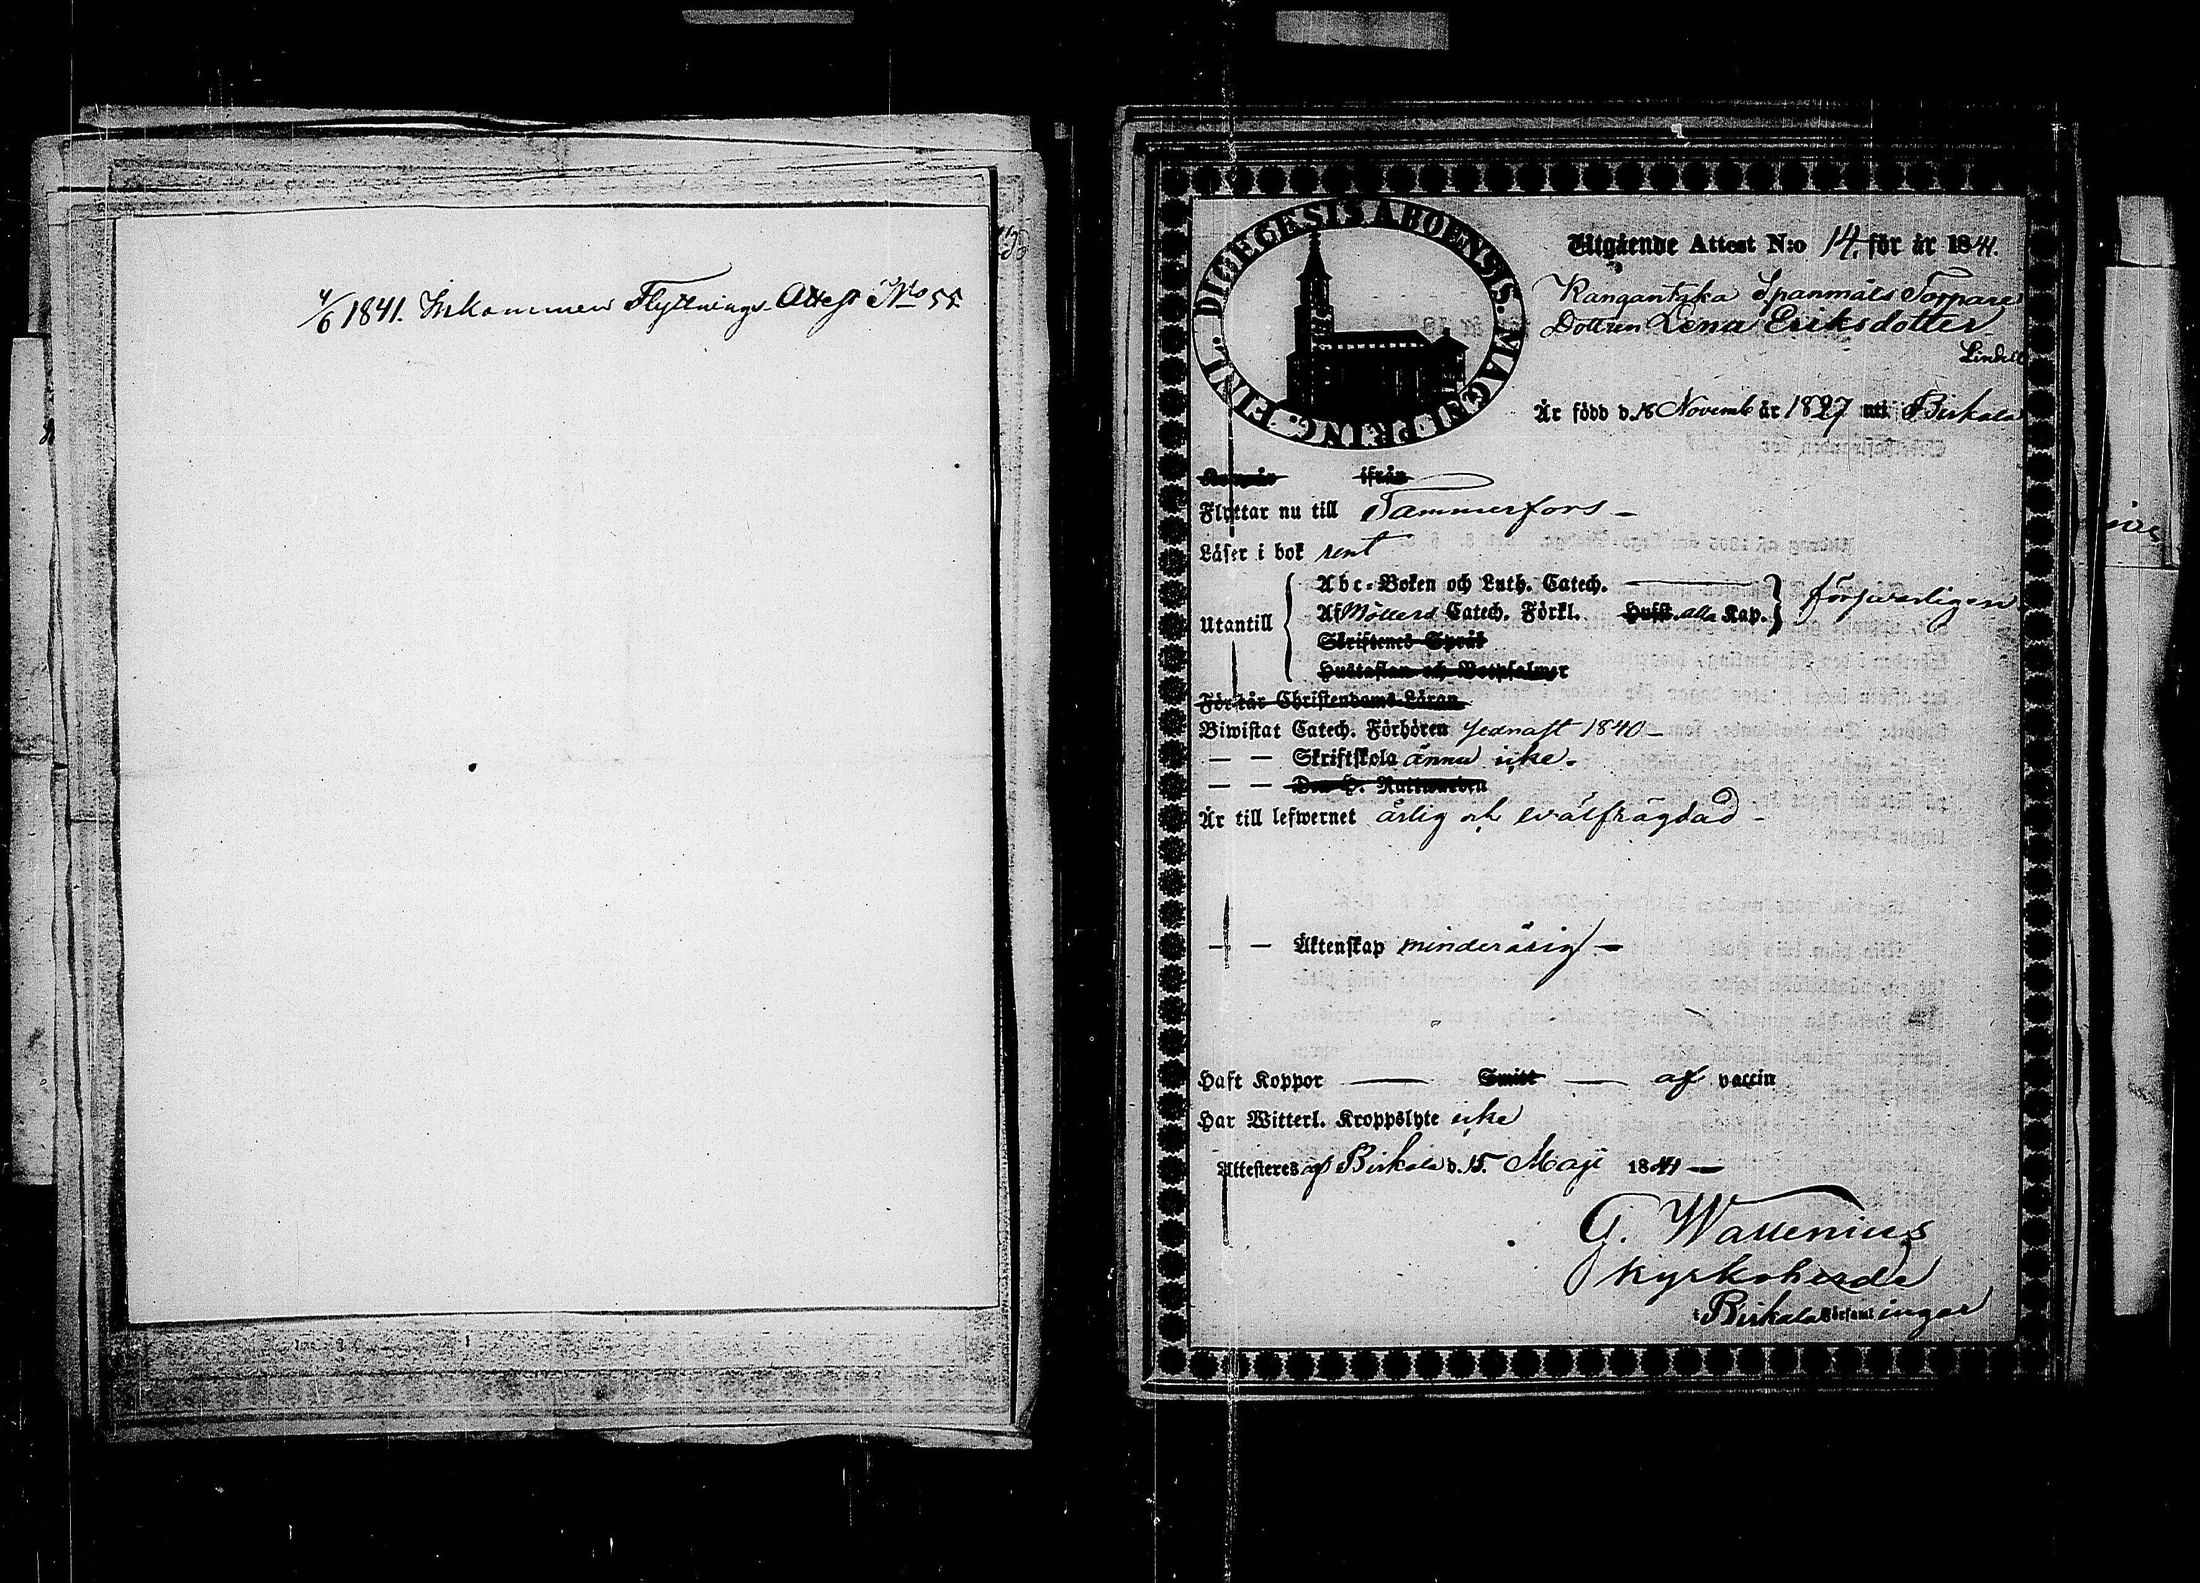 4/6 1841. Inkommen Flyttnings Attest No 55
DIOECESIS ABOENSIS. MAGNI PRINC. FINL.
Utgående Attest N:o 14. för år 1841.
Spanmåls Torpare
Dottren Lena Eriksdotter
Lindell
Är född d. 18 Novemb år 1827 uti Birkala
Kom år ifrån
Flyttar nu till Tammerfors –
Läser i bok rent
Abc-Boken och Luth. Catech. —
Utantill Af Möllers Catech. Förkl. Hufst. alla Kap. försvarligen
Skriftenes Språk
Hustaflan och Botpsalmer
Förstår Christendoms Läran
Biwistat Catech. Förhören sednast 1840 –
— — Skriftskola ännu icke.
— — Den H. Nattwarden
Är till lefwernet ärlig och wälfrägdad –
— — Äktenskap minderårig –
Haft Koppor — Smitt — af vaccin
Har Witterl. Kroppslyte icke
Attesteres af Birkala d. 15. Maji 1841 —
G. Wallenius
Kyrkoherde
i Birkala Församlingar